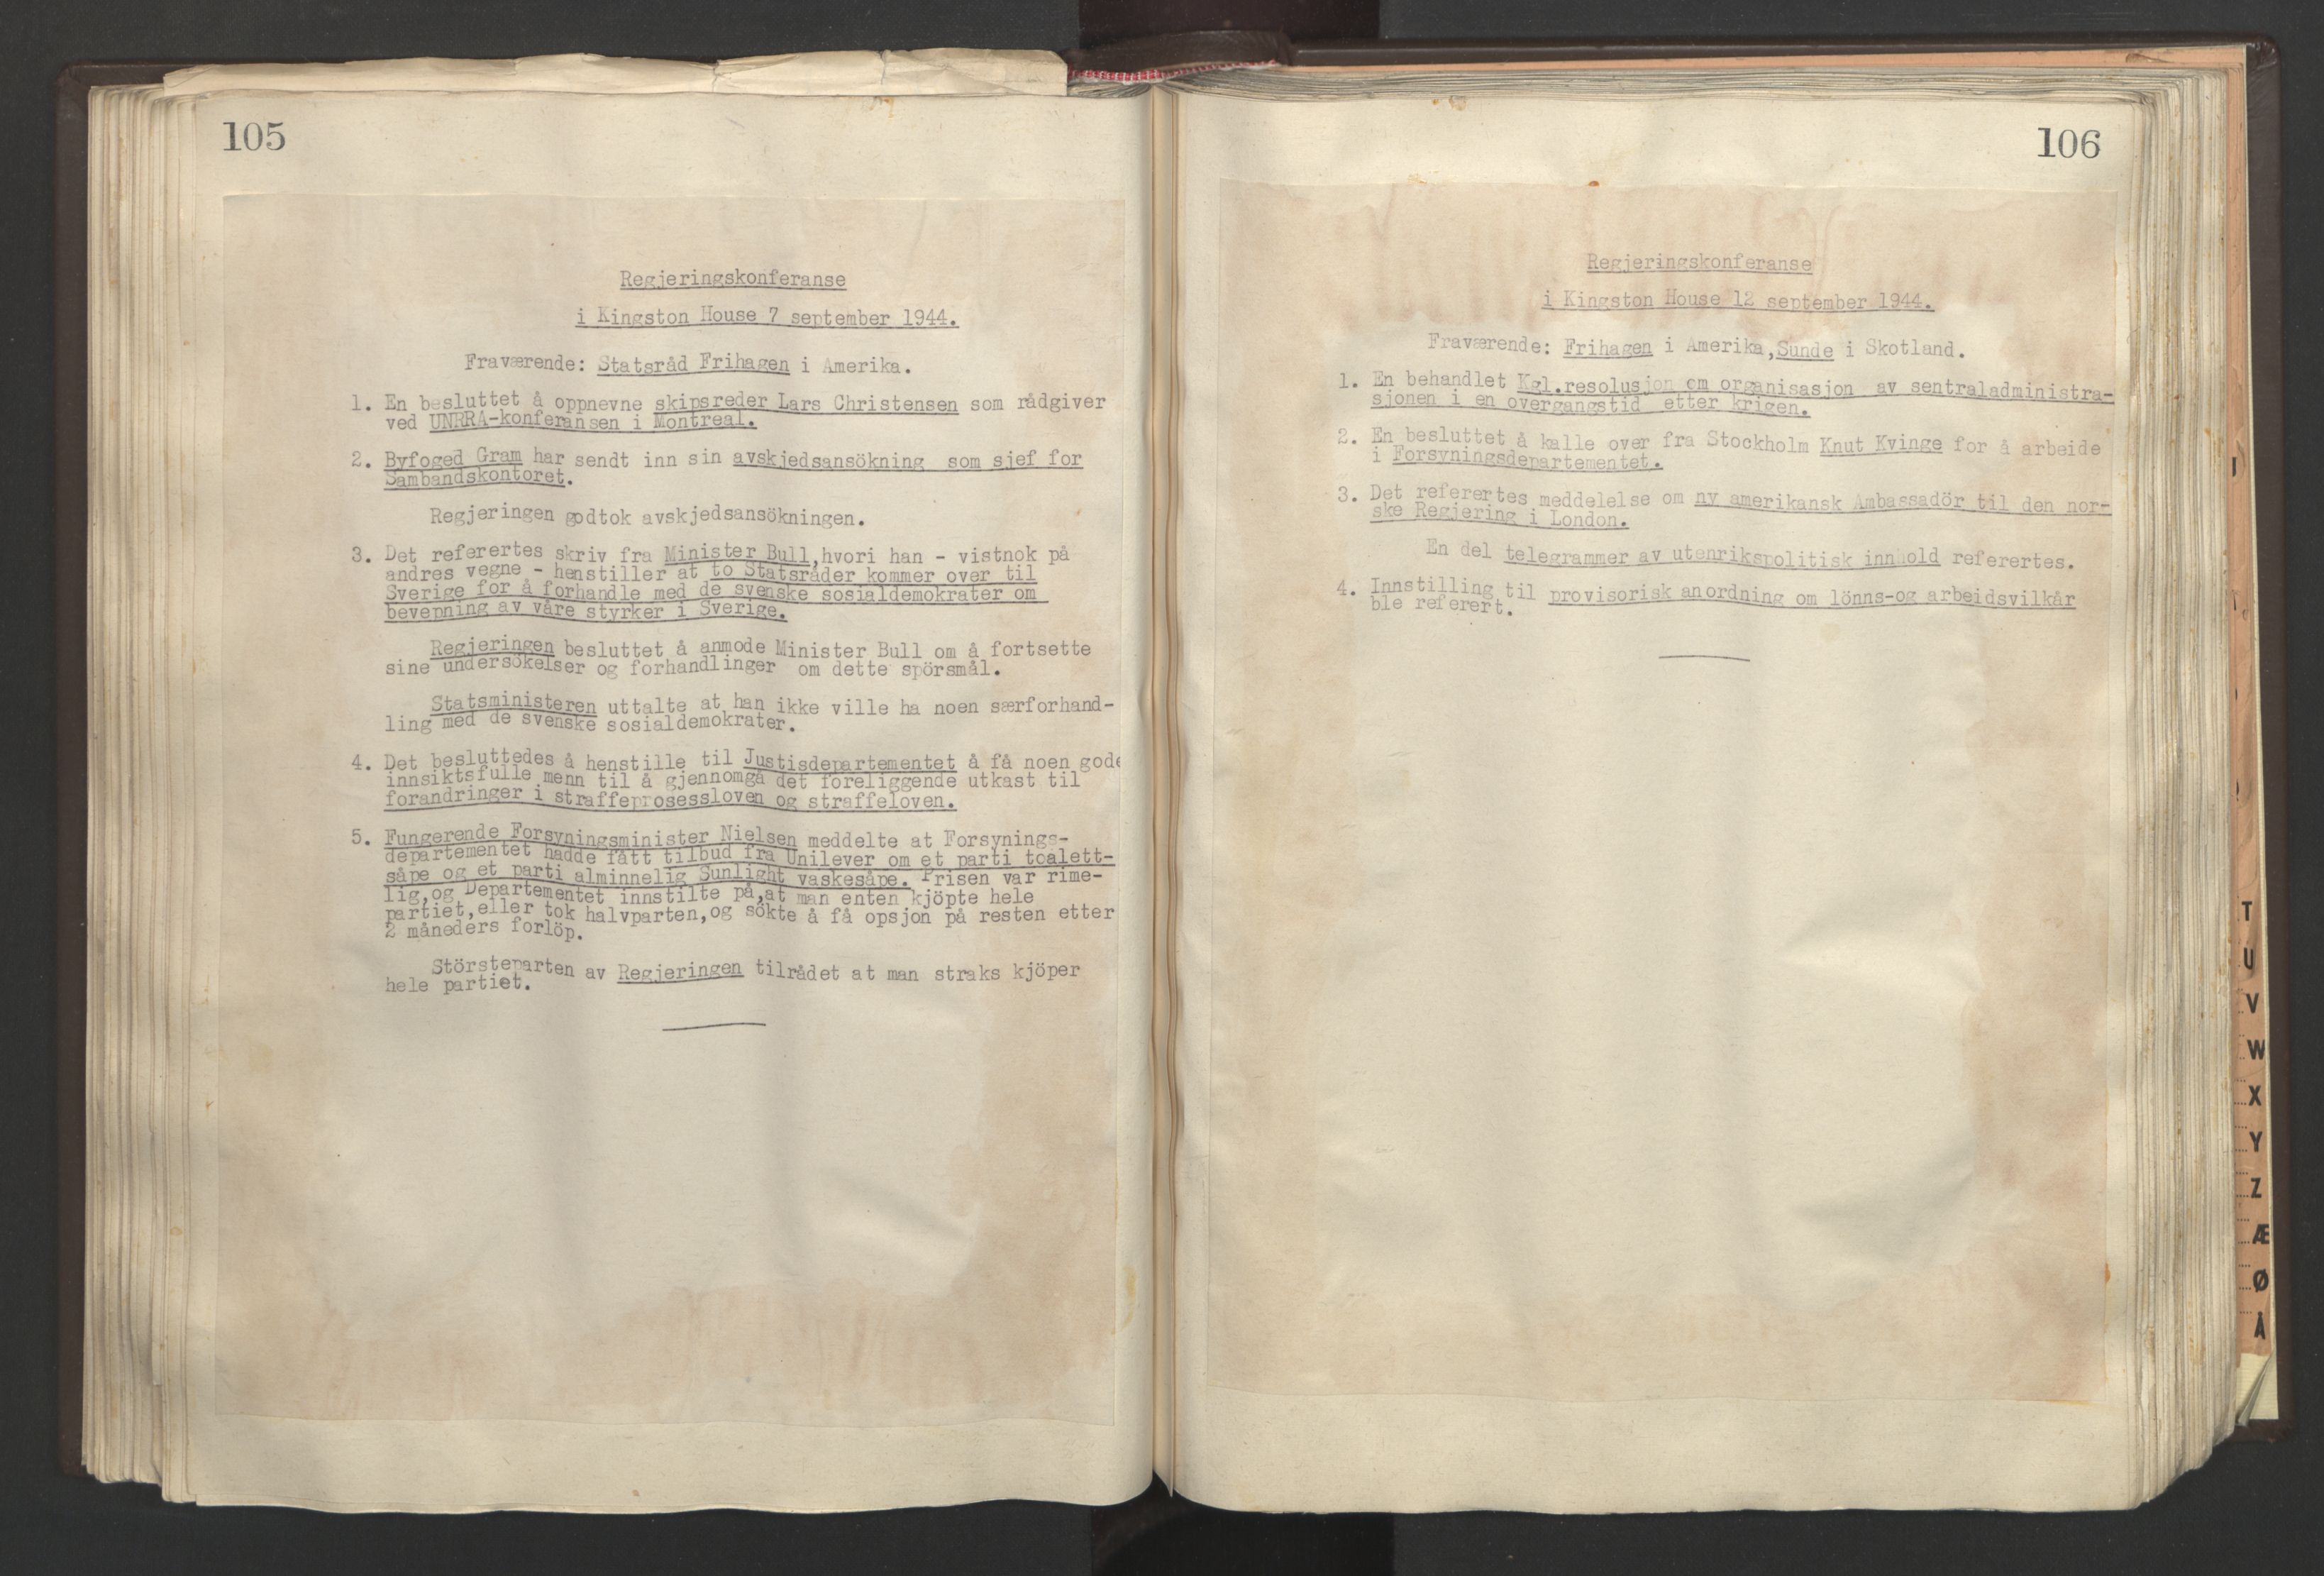 105
Regjeringskonferanse
i Kingston House 7 september 1944.
Fraværende: Statsråd Frihagen i Amerika.
1. En besluttet å oppnevne skipsreder Lars Christensen som rådgiver
ved UNRRA-konferansen i Montreal.
2. Byfoged Gram har sendt inn sin avskjedsansökning som sjef for
Sambandskontoret.
Regjeringen godtok avskjedsansökningen.
3. Det referertes skriv fra Minister Bull,hvori han - vistnok på
andres vegne - henstiller at to Statsråder kommer over til
Sverige for å forhandle med de svenske sosialdemokrater om
bevepning av våre styrker i Sverige.
Regjeringen besluttet å anmode Minister Bull om å fortsette
sine undersökelser og forhandlinger om dette spörsmål.
Statsministeren uttalte at han ikke ville ha noen særforhand-
ling med de svenske sosialdemokrater.
4. Det besluttedes å henstille til Justisdepartementet å få noen gode
innsiktsfulle menn til å gjennomgå det foreliggende utkast til
forandringer i straffeprosessloven og straffeloven.
5. Fungerende Forsyningsminister Nielsen meddelte at Forsynings-
departementet hadde fått tilbud fra Unilever om et parti toalett-
såpe og et parti alminnelig Sunlight vaskesåpe. Prisen var rime-
lig,og Departementet innstilte på,at man enten kjöpte hele
partiet,eller tok halvparten,og sökte å få opsjon på resten etter
2 måneders forlöp.
Störsteparten av Regjeringen tilrådet at man straks kjöper
hele partiet.
106
Regjeringskonferanse
i Kingston House 12 september 1944.
Fraværende: Frihagen i Amerika,Sunde i Skotland.
1. En behandlet Kgl.resolusjon om organisasjon av sentraladministra-
sjonen i en overgangstid etter krigen.
2. En besluttet å kalle over fra Stockholm Knut Kvinge for å arbeide
i Forsyningsdepartementet.
3. Det referertes meddelelse om ny amerikansk Ambassadör til den nor-
ske Regjering i London.
En del telegrammer av utenrikspolitisk innhold referertes.
4. Innstilling til provisorisk anordning om lönns-og arbeidsvilkår
ble referert.
T
U
V
W
X
Y
Z
Æ
Ø
Å